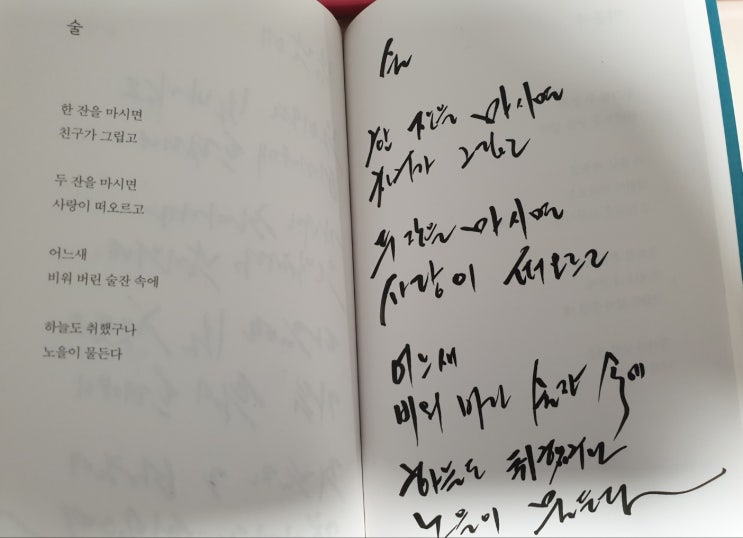 술
한 잔을 마시면
친구가 그립고
두 잔을 마시면
사랑이 떠오르고
어느새
비워 버린 술잔 속에
하늘도 취했구나
노을이 물든다
술
한 잔을 마시면
친구가 그립고
두 잔을 마시면
사랑이 떠오르고
어느새
비워 버린 술잔 속에
하늘도 취했구나
노을이 물든다